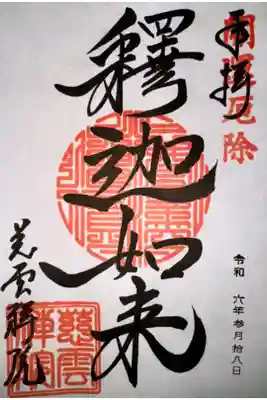 奉拝
開運厄除
釋迦如来
令和 六年参月拾八日
慈雲禅院
慈雲
禅院